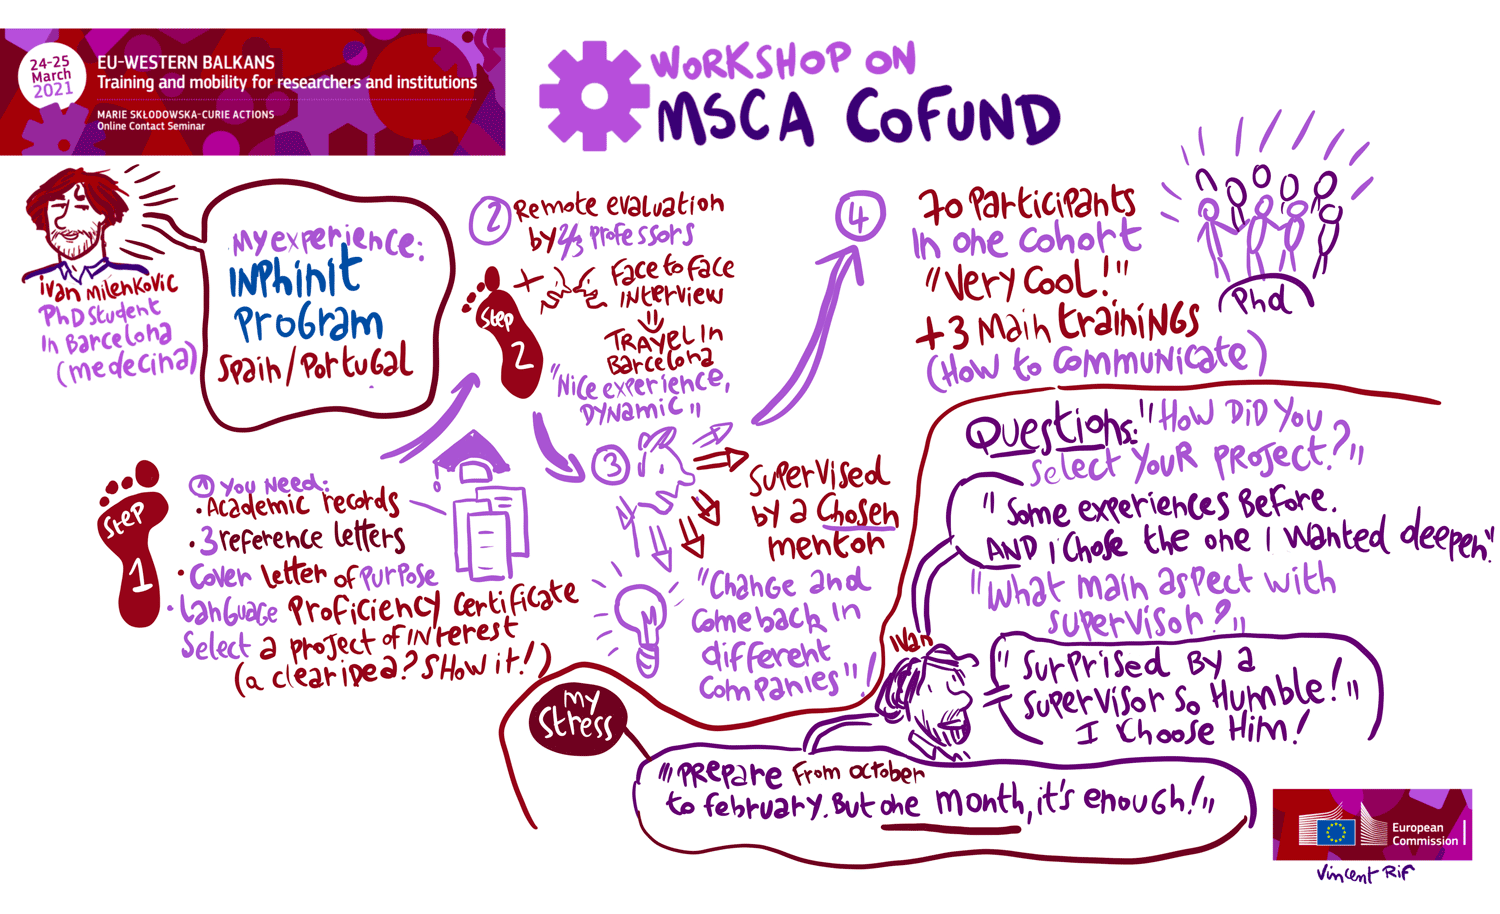 24-25
March
2021
EU-WESTERN BALKANS
Training and mobility for researchers and institutions
MARIE SKŁODOWSKA-CURIE ACTIONS
Online Contact Seminar
WORKSHOP ON
MSCA COFUND
ivan Milenkovic
PhD Student
In Barcelona
(medecina)
My experience:
INPhINIT
PROGRAM
Spain/Portugal
Step
1
① You Need:
• Academic records
• 3 reference letters
• Cover letter of Purpose
• Language Proficiency Certificate
Select a project of INterest
(a clear idea? SHow it!)
②
Remote evaluation
by 2/3 Professors
Step
2
+
Face to Face
INterview
=
TRAVEL IN
Barcelona
"Nice experience,
DYNAMIC"
③
Supervised
by a Chosen
mentor
"Change and
come back in
different
companies"!
④
70 Participants
In one cohort
"Very Cool!"
+ 3 Main trainiNGs
(How to communicate)
Phd
Questions: "How DiD You
Select YouR PRoject?"
"Some experiences Before.
AND i chose the one I wanted deepen"
"What main aspect with
supervisor?"
Ivan
"Surprised By a
supervisor so Humble!"
I choose Him!
My
Stress
"Prepare From october
to february. But one month, it's enough!"
European
Commission
Vincent Rif